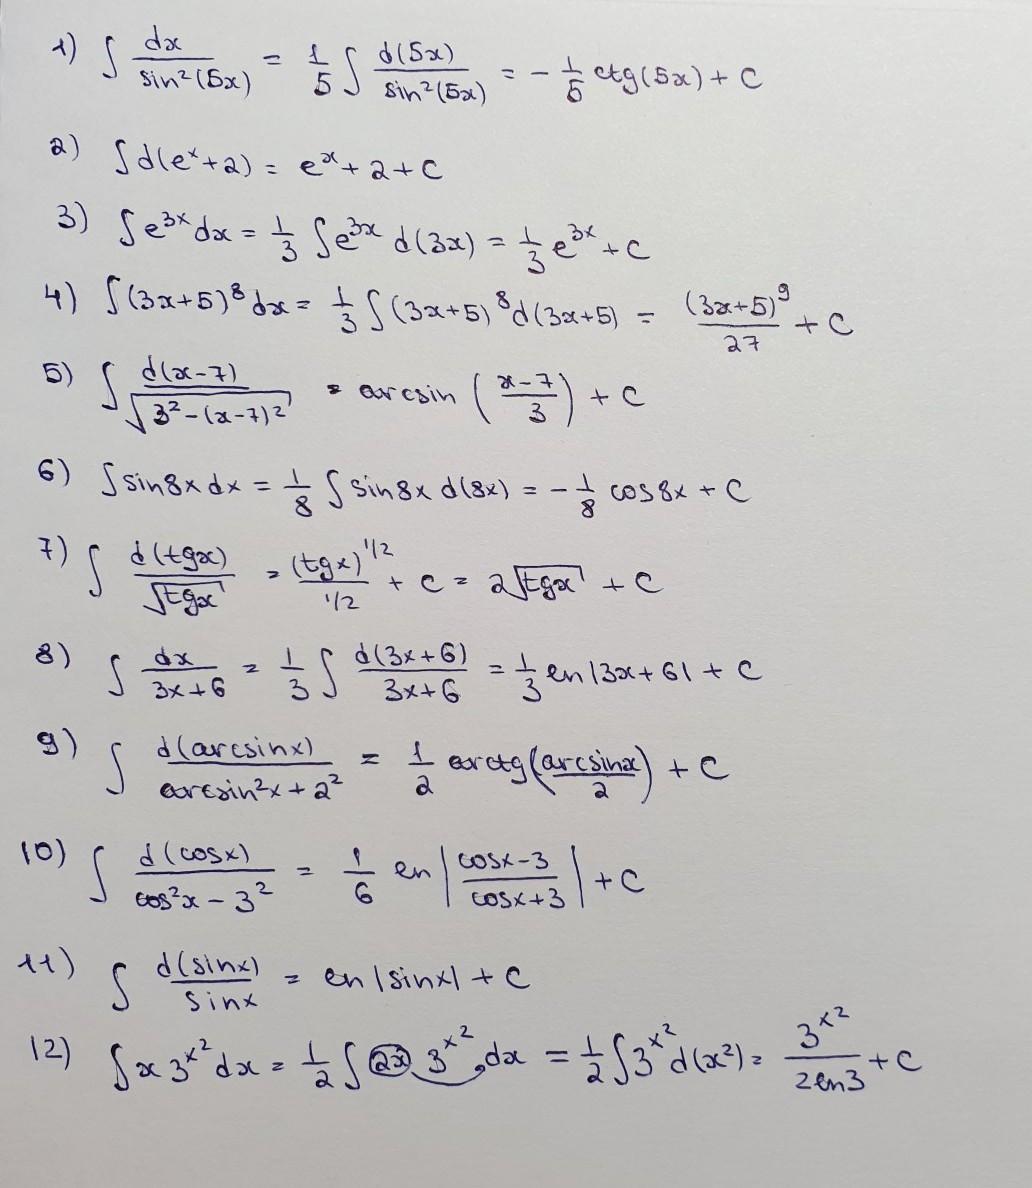 1) ∫ dx / sin²(5x) = 1/5 ∫ d(5x) / sin²(5x) = - 1/5 ctg(5x) + C
2) ∫ d(eˣ+2) = eˣ + 2 + C
3) ∫ e³ˣ dx = 1/3 ∫ e³ˣ d(3x) = 1/3 e³ˣ + C
4) ∫ (3x+5)⁸ dx = 1/3 ∫ (3x+5)⁸ d(3x+5) = (3x+5)⁹ / 27 + C
5) ∫ d(x-7) / √(3² - (x-7)²) = arcsin ((x-7)/3) + C
6) ∫ sin8x dx = 1/8 ∫ sin8x d(8x) = - 1/8 cos8x + C
7) ∫ d(tgx) / √tgx = (tgx)^1/2 / 1/2 + C = 2√tgx + C
8) ∫ dx / 3x+6 = 1/3 ∫ d(3x+6) / 3x+6 = 1/3 ln |3x+6| + C
9) ∫ d(arcsinx) / arcsin²x + 2² = 1/2 arctg(arcsinx / 2) + C
10) ∫ d(cosx) / cos²x - 3² = 1/6 ln | cosx-3 / cosx+3 | + C
11) ∫ d(sinx) / sinx = ln |sinx| + C
12) ∫ x 3^x² dx = 1/2 ∫ 2x 3^x² dx = 1/2 ∫ 3^x² d(x²) = 3^x² / 2ln3 + C